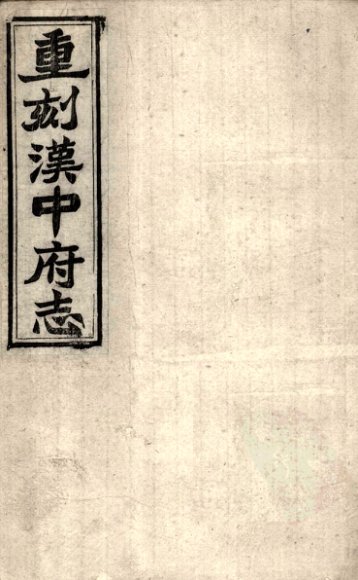 重刻漢中府志